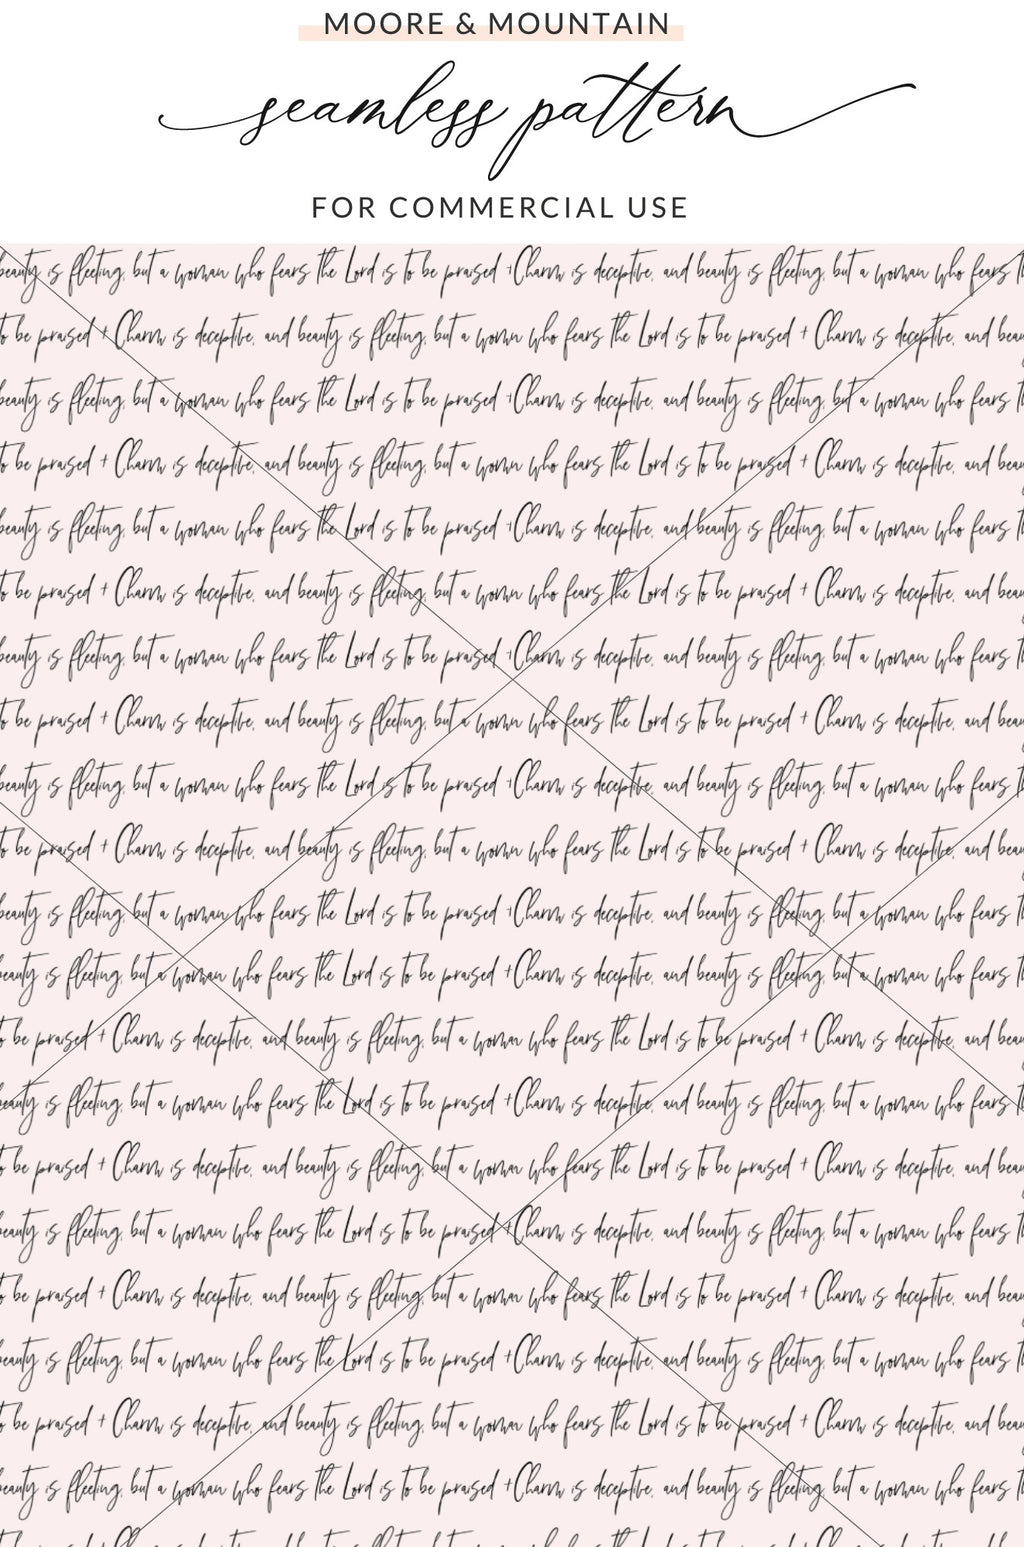 MOORE & MOUNTAIN
seamless pattern
FOR COMMERCIAL USE
beauty is fleeting, but a woman who fears the Lord is to be praised + Charm is deceptive, and beauty is fleeting, but a woman who fears
to be praised + Charm is deceptive, and beauty is fleeting, but a woman who fears the Lord is to be praised + Charm is deceptive, and
beauty is fleeting, but a woman who fears the Lord is to be praised + Charm is deceptive, and beauty is fleeting, but a woman who fears
to be praised + Charm is deceptive, and beauty is fleeting, but a woman who fears the Lord is to be praised + Charm is deceptive, and
beauty is fleeting, but a woman who fears the Lord is to be praised + Charm is deceptive, and beauty is fleeting, but a woman who fears
to be praised + Charm is deceptive, and beauty is fleeting, but a woman who fears the Lord is to be praised + Charm is deceptive, and
beauty is fleeting, but a woman who fears the Lord is to be praised + Charm is deceptive, and beauty is fleeting, but a woman who fears
to be praised + Charm is deceptive, and beauty is fleeting, but a woman who fears the Lord is to be praised + Charm is deceptive, and
beauty is fleeting, but a woman who fears the Lord is to be praised + Charm is deceptive, and beauty is fleeting, but a woman who fears
to be praised + Charm is deceptive, and beauty is fleeting, but a woman who fears the Lord is to be praised + Charm is deceptive, and
beauty is fleeting, but a woman who fears the Lord is to be praised + Charm is deceptive, and beauty is fleeting, but a woman who fears
beauty is fleeting, but a woman who fears the Lord is to be praised + Charm is deceptive, and beauty is fleeting, but a woman who fears
to be praised + Charm is deceptive, and beauty is fleeting, but a woman who fears the Lord is to be praised + Charm is deceptive, and
beauty is fleeting, but a woman who fears the Lord is to be praised + Charm is deceptive, and beauty is fleeting, but a woman who fears
to be praised + Charm is deceptive, and beauty is fleeting, but a woman who fears the Lord is to be praised + Charm is deceptive, and
beauty is fleeting, but a woman who fears the Lord is to be praised + Charm is deceptive, and beauty is fleeting, but a woman who fears
to be praised + Charm is deceptive, and beauty is fleeting, but a woman who fears the Lord is to be praised + Charm is deceptive, and
beauty is fleeting, but a woman who fears the Lord is to be praised + Charm is deceptive, and beauty is fleeting, but a woman who fears
to be praised + Charm is deceptive, and beauty is fleeting, but a woman who fears the Lord is to be praised + Charm is deceptive, and
beauty is fleeting, but a woman who fears the Lord is to be praised + Charm is deceptive, and beauty is fleeting, but a woman who fears